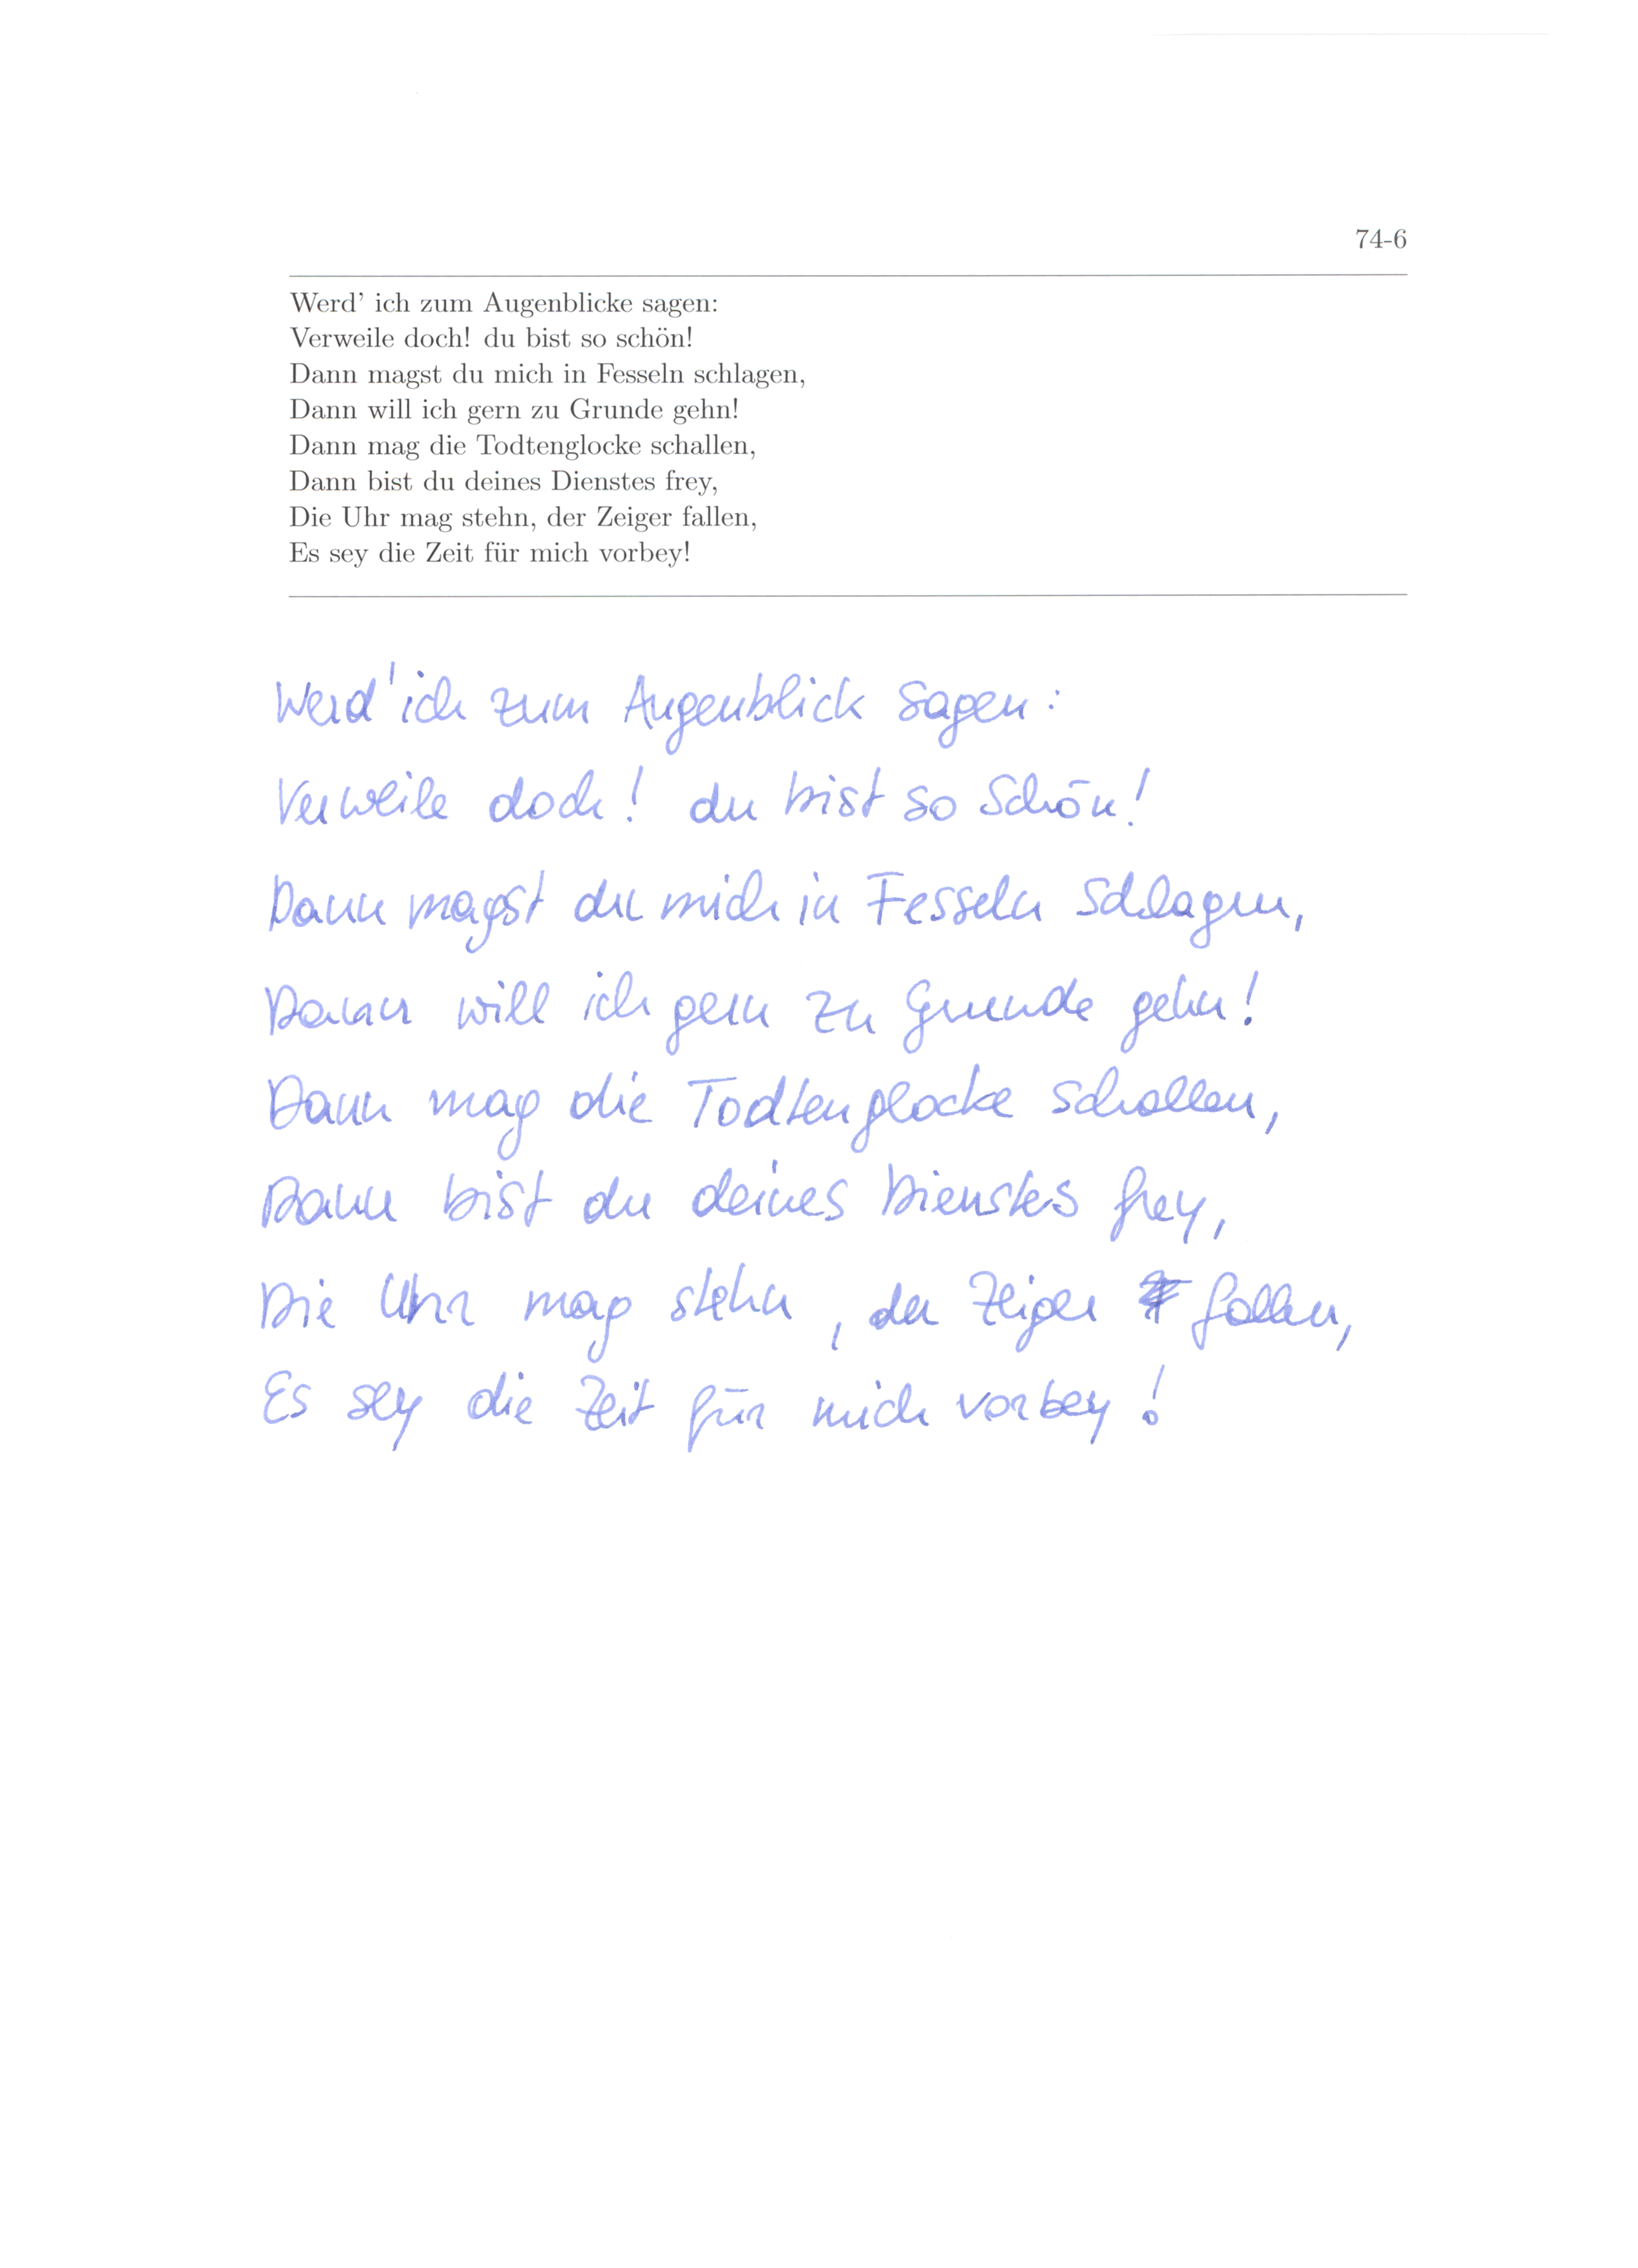 74-6
Werd' ich zum Augenblicke sagen:
Verweile doch! du bist so schön!
Dann magst du mich in Fesseln schlagen,
Dann will ich gern zu Grunde gehn!
Dann mag die Todtenglocke schallen,
Dann bist du deines Dienstes frey,
Die Uhr mag stehn, der Zeiger fallen,
Es sey die Zeit für mich vorbey!
Werd' ich zum Augenblick sagen:
Verweile doch! du bist so schön!
Dann magst du mich in Fesseln schlagen,
Dann will ich gern zu Grunde gehn!
Dann mag die Todtenglocke schallen,
Dann bist du deines Dienstes frey,
Die Uhr mag stehn, der Zeiger fallen,
Es sey die Zeit für mich vorbey!